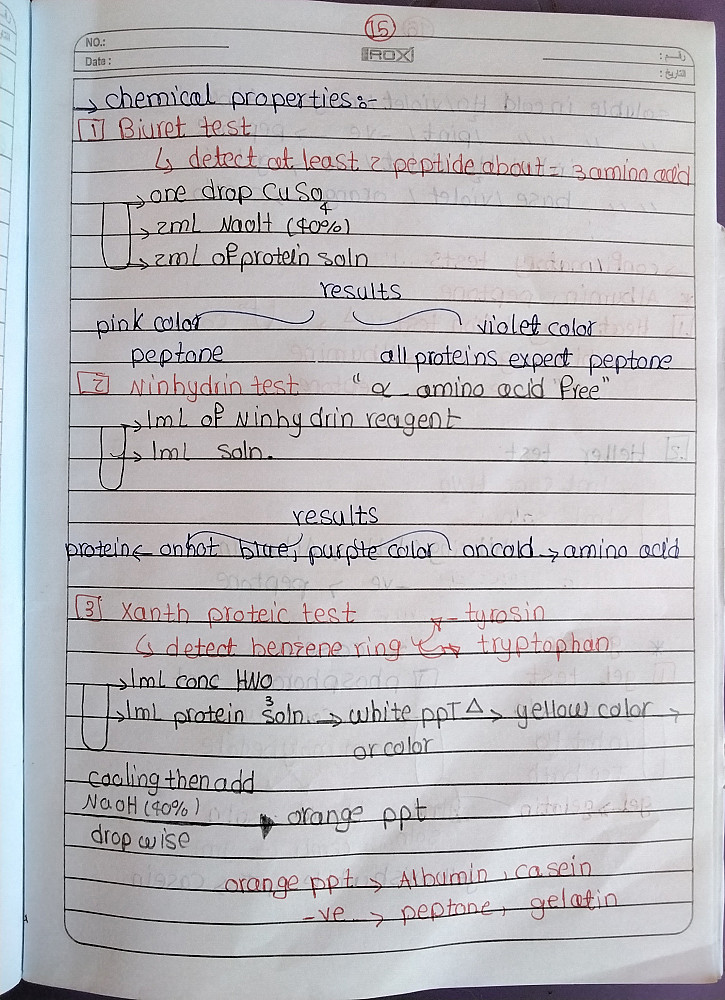 15
NO.:
Date :
ROXI
رقم :
التاريخ :
→ chemical properties :-
1 Biuret test
↳ detect at least 2 peptide about = 3 amino acid
→ one drop CuSO4
→ 2mL NaoH (40%)
→ 2mL of protein soln
results
pink color violet color
peptone all proteins expect peptone
2 Ninhydrin test " α_ amino acid "free"
→ 1mL of Ninhydrin reagent
→ 1mL soln.
results
protein ← onhot blue, purple color oncold → amino acid
3 Xanth proteic test - tyrosin
↳ detect benzene ring → tryptophan
→ 1mL conc HNO3
→ 1mL protein soln. → white ppT Δ → yellow color →
or color
cooling then add
NaOH (40%) → orange ppt
drop wise
orange ppt → Albumin, casein
-ve → peptone, gelatin